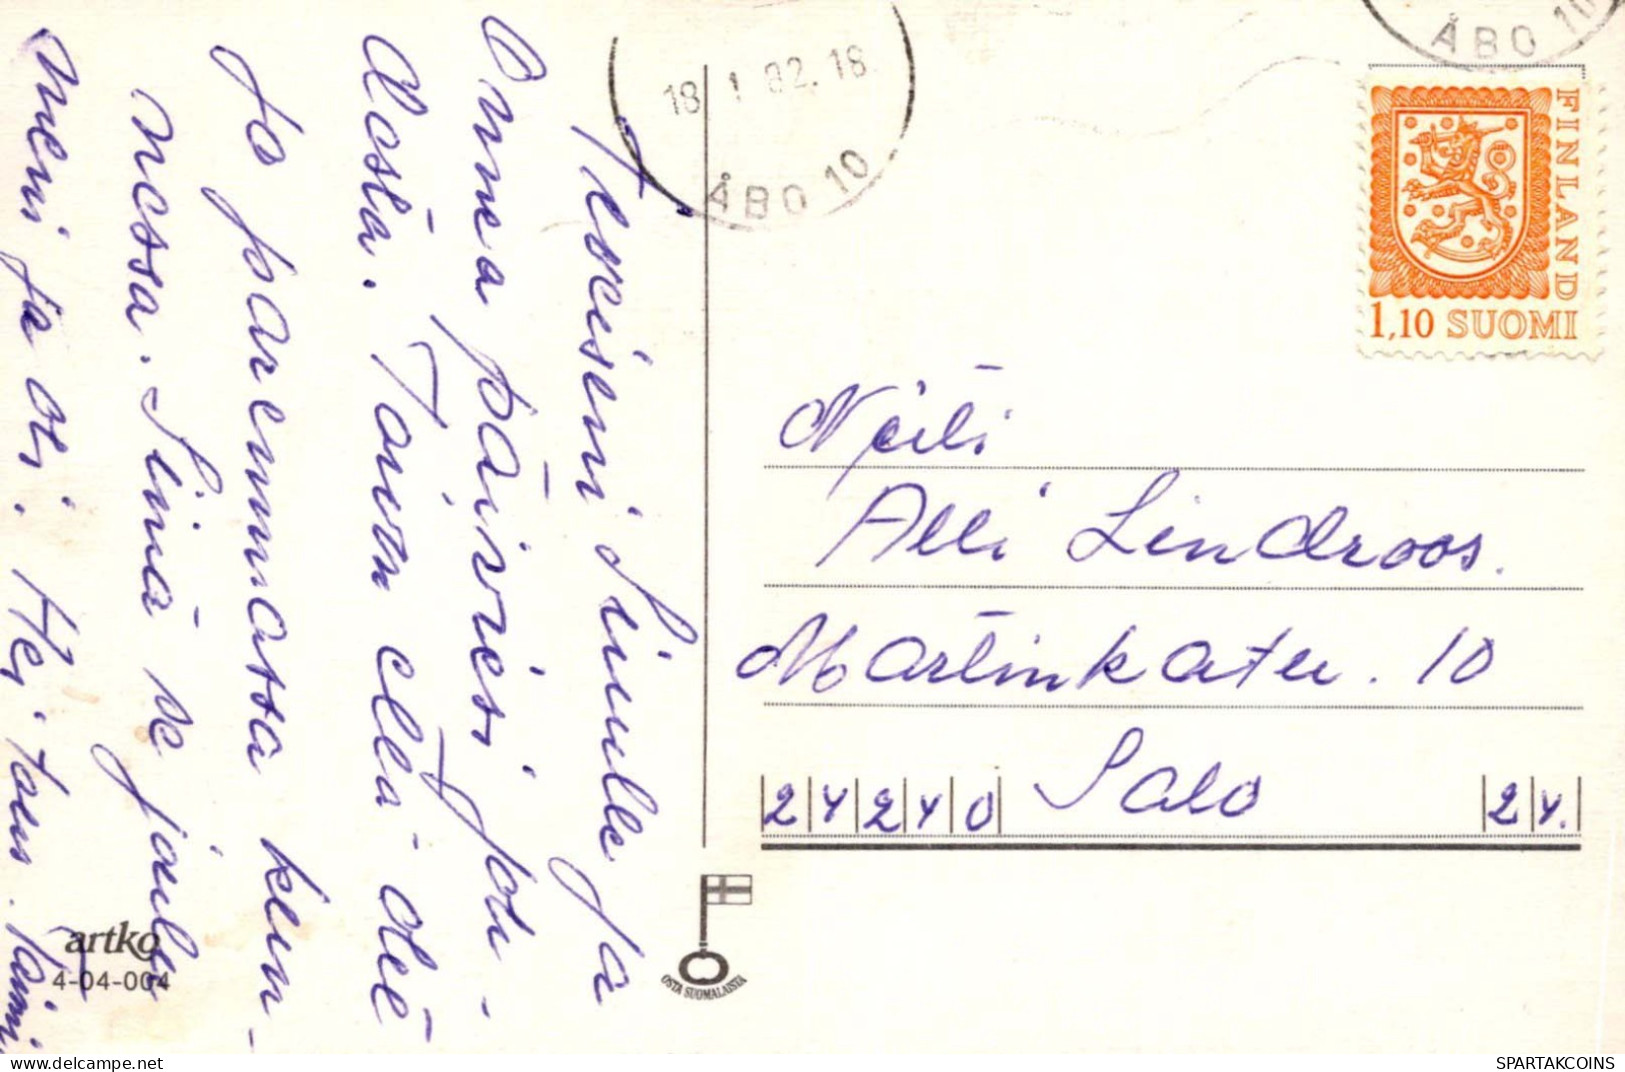 Terveiseni Sinulle ja
Onnea päiviesi jou-
dosta. Toivon että olet
jo paremmassa kun-
nossa. Sinä se joulu
meni ja oli. Hei toiv. Toimi
artko
4-04-004
18 1 82.18
ÅBO 10
ÅBO 10
FINLAND
1,10 SUOMI
Neiti
Alli Lindroos.
Martinkatu. 10
24240 Salo 24.
OSTA SUOMALAISTA
www.delcampe.net
SPARTAKCOINS